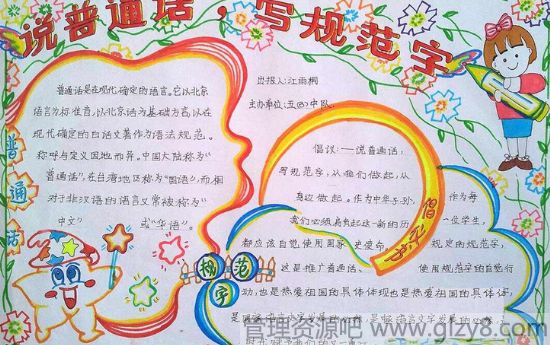 说普通话，写规范字
普通话是在现代确定的语言。它以北京
语言为标准音，以北京话为基础方言，以在
现代确定的白话文著作为语法规范。
称呼与定义因地而异。中国大陆称为“
普通话”，在台湾地区称为“国语”，而相
对于非汉语的语言又常被称为“
中文” 或“华语”。
普通话
出报人：江雨桐
主办单位：五(3)中队
倡议：——说普通话，
写规范字，从我们做起，从
身边做起。作为中华子孙， 作为每
我们必须肩负起这一新的历 一位学生，
都应该自觉使用国家 史使命， 规定的规范字，
这是推广普通话、 使用规范字的自觉行
动，也是热爱祖国的具体体现也是热爱祖国的具体体
倡议书
规范字
管理资源吧 www.glzy8.com